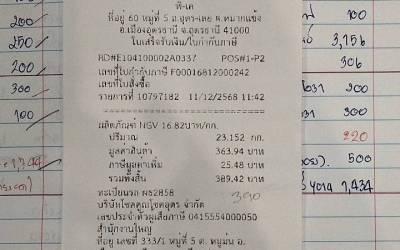 พี-เค
ที่อยู่ 60 หมู่ที่ 5 ถ.อุดร-เลย ต.หมากแข้ง
อ.เมืองอุดรธานี จ.อุดรธานี 41000
ใบเสร็จรับเงิน/ใบกำกับภาษี
RD#E104100002A0337 POS#1-P2
เลขที่ใบกำกับภาษี F00016812000242
เลขที่ใบสั่งซื้อ
รายการที่ 10797182 11/12/2568 11:42
ผลิตภัณฑ์ NGV 16.82บาท/กก.
ปริมาณ 23.152 กก.
มูลค่าสินค้า 363.94 บาท
ภาษีมูลค่าเพิ่ม 25.48 บาท
รวมทั้งสิ้น 389.42 บาท
390
ทะเบียนรถ ผร2858
บริษัทโชคคูณโชคอุดร จำกัด
เลขประจำตัวผู้เสียภาษี 0415554000050
สำนักงานใหญ่
ที่อยู่ เลขที่ 333/1 หมู่ที่ 5 ต. หมูม่น อ.
200
250
200
300
100
100
3,156
306
300
300
220
500
1,434